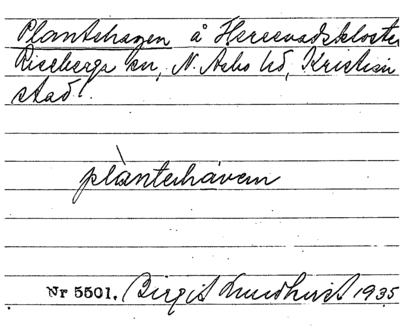 Plantehagen å Herrevadskloster
Riseberga sn, N. Åsbo hd, Kristian
stad l.
plànterháven
Nr 5501. Birgit Lundqvist 1935